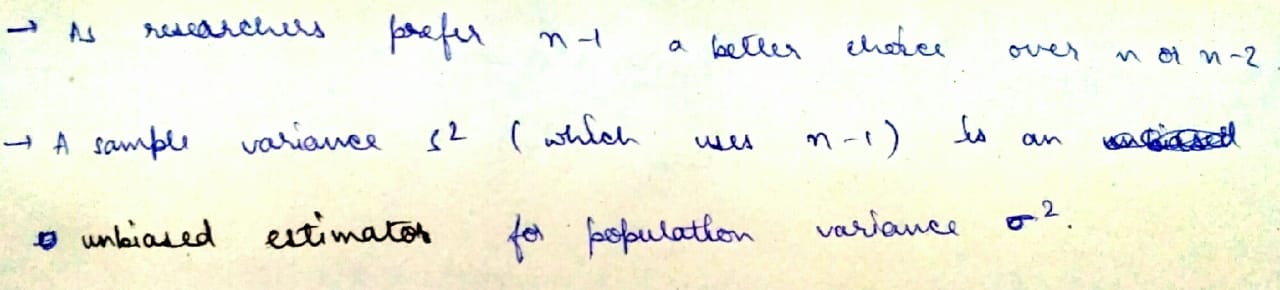 → As researchers prefer n-1 a better choice over n or n-2.
→ A sample variance s² (which uses n-1) is an
unbiased estimator for population variance σ².